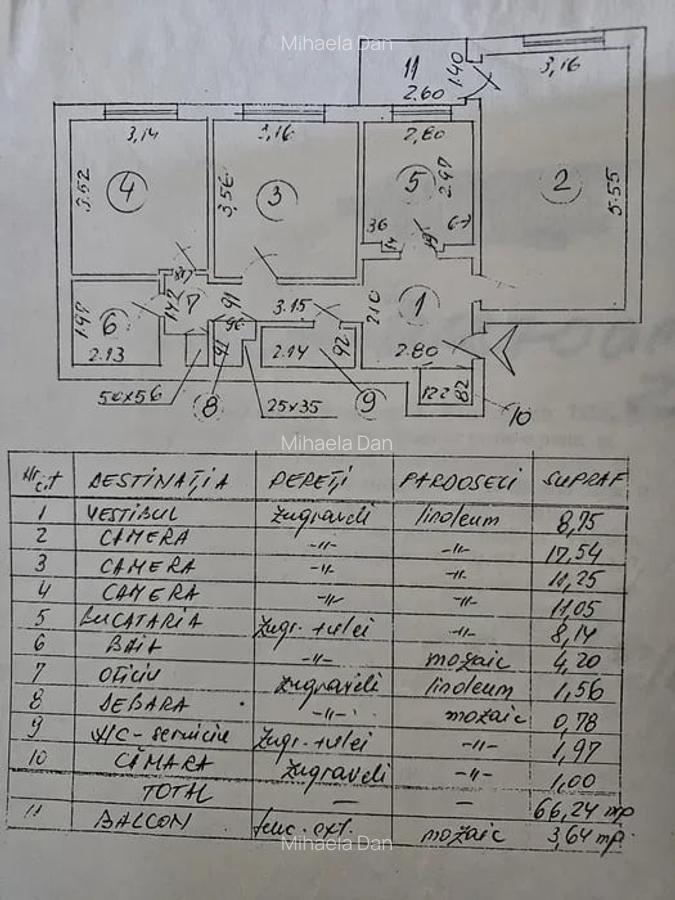 Mihaela Dan
11
1.40
3,16
2.60
3,14
3,16
2,80
3.52
4
3,56
3
5
2,97
2
5.55
36
14
19
87
7
142
91
3.15
2.10
1
1,97
6
2.13
96
91
2.14
92
2.80
50x56
8
25x35
9
122
82
10
Mihaela Dan
Nr c.t DESTINAȚIA PEREȚI PARDOSELI SUPRAF
1 VESTIBUL zugraveli linoleum 8,75
2 CAMERA -//- -//- 17,54
3 CAMERA -//- -//- 11,25
4 CAMERA -//- -//- 11,05
5 BUCATARIA zugr.+ulei -//- 8,14
6 BAIA -//- mozaic 4,20
7 OFICIU zugraveli linoleum 1,56
8 DEBARA -//- mozaic 0,78
9 WC-serviciu zugr.+ulei -//- 1,97
10 CĂMARA zugraveli -//- 1,00
TOTAL — — 66,24 mp
11 BALCON tenc.ext. mozaic 3,64 mp.
Mihaela Dan